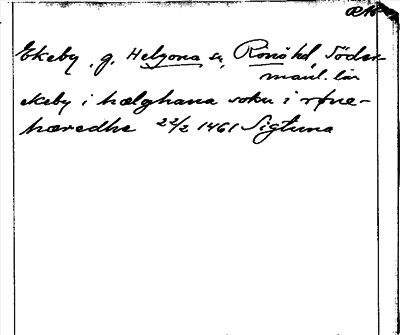 ÆN
Ekeby, g. Helgona sn, Rönö hd, Söder-
manl. län
ekeby i hælghana sokn i røne-
hæredhe 22/2 1461 Sigtuna